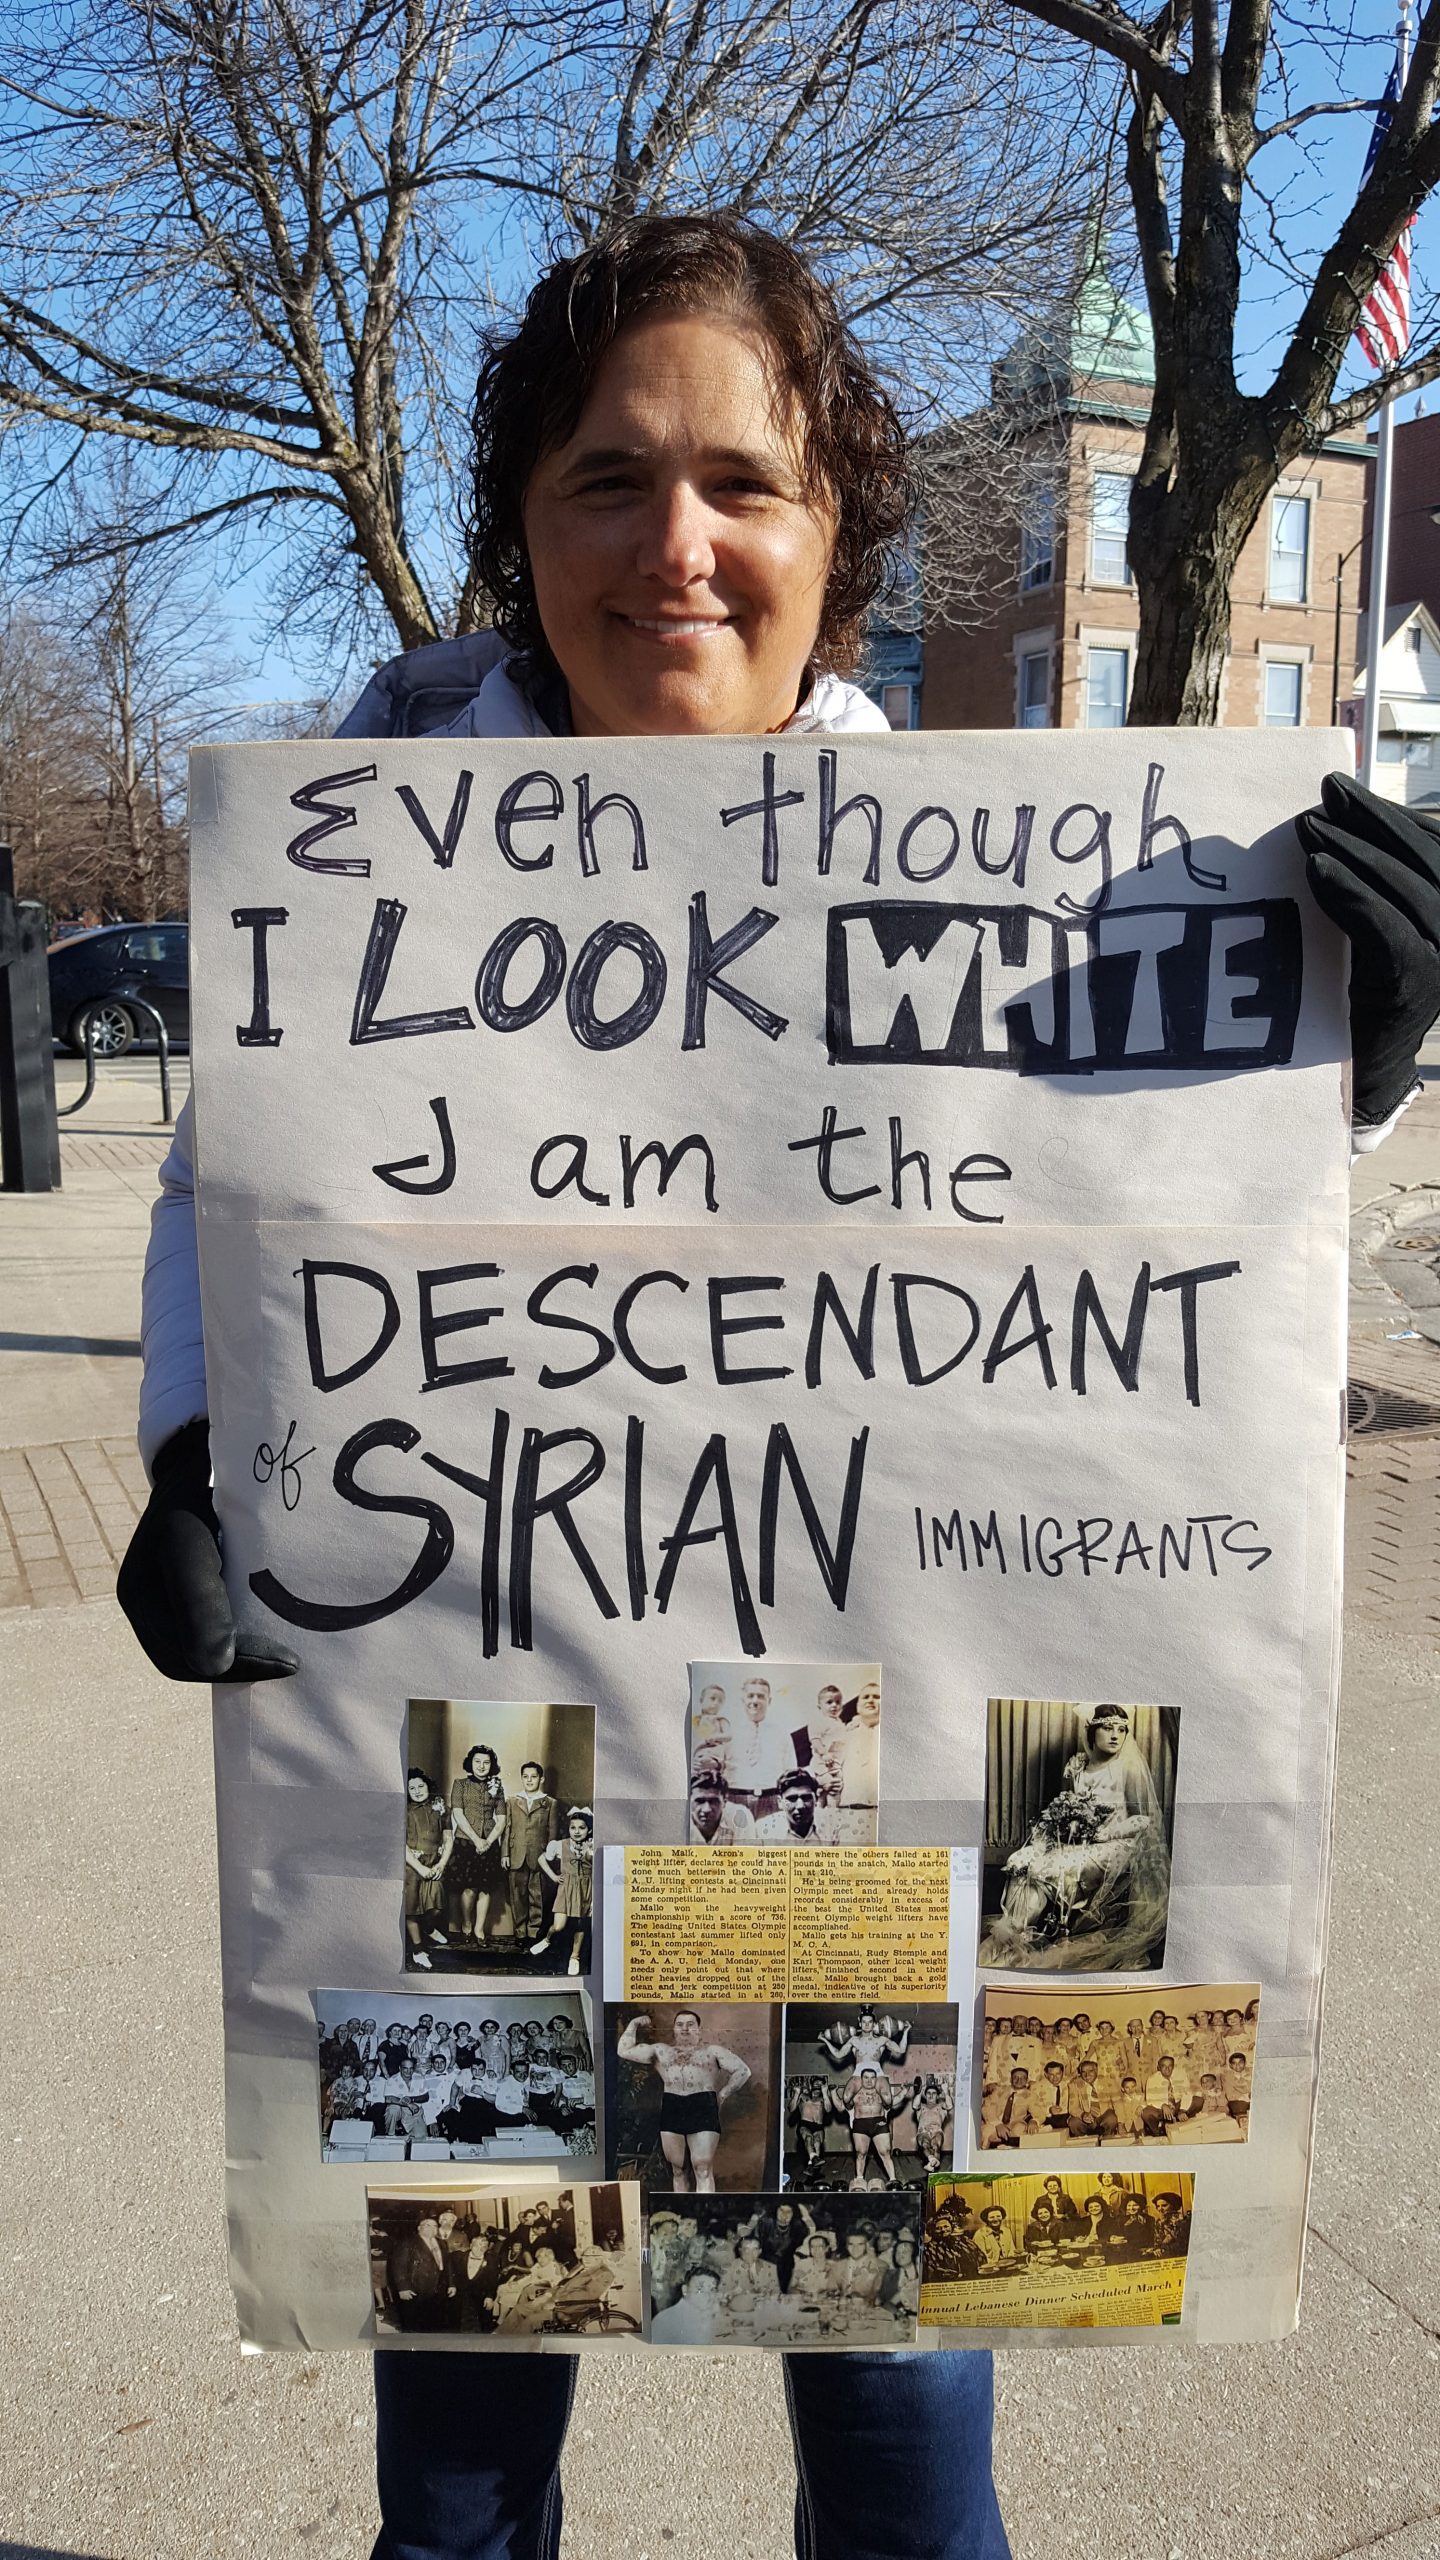 Even though
I LOOK WHITE
I am the
DESCENDANT
of SYRIAN IMMIGRANTS
John Malk, Akron's biggest
weight lifter, declares he could have
done much better in the Ohio A.
A. U. lifting contests at Cincinnati
Monday night if he had been given
some competition.
Mallo won the heavyweight
championship with a score of 736.
The leading United States Olympic
contestant last summer lifted only
691, in comparison.
To show how Mallo dominated
the A. A. U. field Monday, one
needs only point out that where
other heavies dropped out of the
clean and jerk competition at 250
pounds, Mallo started in at 260,
and where the others failed at 161
pounds in the snatch, Mallo started
in at 210.
He is being groomed for the next
Olympic meet and already holds
records considerably in excess of
the best the United States most
recent Olympic weight lifters have
accomplished.
Mallo gets his training at the Y.
M. C. A.
At Cincinnati, Rudy Stemple and
Karl Thompson, other local weight
lifters, finished second in their
class. Mallo brought back a gold
medal, indicative of his superiority
over the entire field.
nnual Lebanese Dinner Scheduled March 1